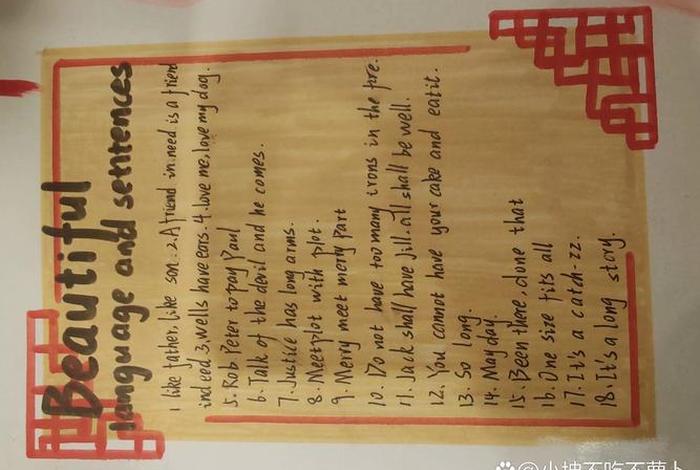 Beautiful
language and sentences
1 like father, like son. 2. A friend in need is a friend
indeed 3. wells have ears. 4. love me, love my dog.
5. Rob Peter to pay Paul
6. Talk of the devil and he comes.
7. Justice has long arms.
8. Meet plot with plot.
9. Merry meet merry part
10. Do not have too many irons in the fire.
11. Jack shall have Jill. all shall be well.
12. You cannot have your cake and eat it.
13. So long.
14. May day.
15. Been there, done that
16. One size fits all
17. It's a catch-22.
18. It's a long story.